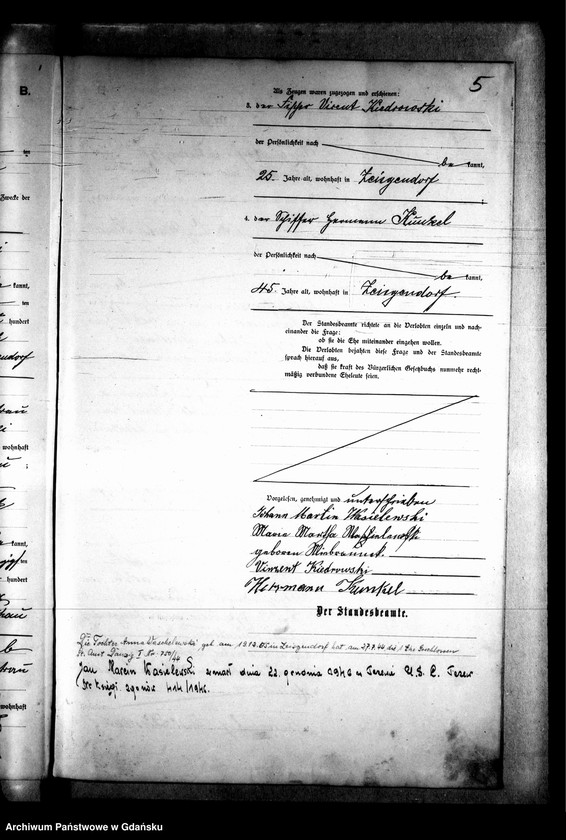 B.
5
Als Zeugen waren zugezogen und erschienen:
3. der Vincent Kiedrowski
der Persönlichkeit nach
be kannt,
25 Jahre alt, wohnhaft in Zeisgendorf
4. der Schiffer Hermann Kunkel
der Persönlichkeit nach
be kannt,
45 Jahre alt, wohnhaft in Zeisgendorf.
Der Standesbeamte richtete an die Verlobten einzeln und nach-
einander die Frage:
ob sie die Ehe miteinander eingehen wollen.
Die Verlobten bejahten diese Frage und der Standesbeamte
sprach hierauf aus,
daß sie kraft des Bürgerlichen Gesetzbuchs nunmehr recht-
mäßig verbundene Eheleute seien.
Vorgelesen, genehmigt und unterschrieben
Johann Martin Wasielewski
Maria Martha
geboren
Vinzent Kiedrowski
Herrmann Kunkel
Der Standesbeamte.
Die Tochter Anna geb. am in Zeisgendorf hat am
St. Amt Danzig I Nr. 750/44
Jan Marcin Wasielewski zmarł dnia 22. grudnia 1946 w Tczewie U.S.C. Tczew
Nr księgi zgonów
Zwecke der
kannt,
ten
hundert
wohnhaft
kannt,
ten
hundert
wohnhaft
Archiwum Państwowe w Gdańsku